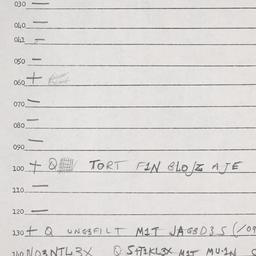 030 —
040 —
041 —
050 —
060 +
070 —
080 —
090 —
100 + Q TORT F1N GLOJZ AJE
110 —
120 —
130 + Q UNG3FILT M1T JAG3D3S (/09
140 NO3NTL3X Q SAT1KL3X M1T MU·1N S